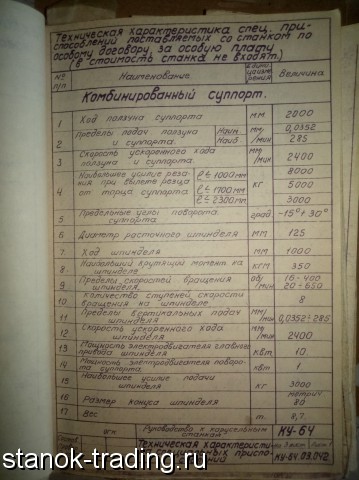 Техническая характеристика спец. при-
способлений поставляемых со станком по
особому договору, за особую плату
(в стоимость станка не входят.)
№ п/п Наименование Единиц. измерения Величина
Комбинированный суппорт.
1 Ход ползуна суппорта мм 2000
2 Пределы подач ползуна и суппорта. Наим. Наиб. мм/мин 0,0352 285
3 Скорость ускоренного хода ползуна и суппорта мм/мин 2400
4 Наибольшее усилие резания при вылете резца от торца суппорта ℓ≤1000мм ℓ≤1700мм ℓ≤2300мм кг 8000 5000 3000
5 Предельные углы поворота суппорта град -15°+30°
6 Диаметр расточного шпинделя мм 125
7 Ход шпинделя мм 1000
8 Наибольший крутящий момент на шпинделе кгм 350
9 Пределы скоростей вращения шпинделя. об/мин 16-400 20-650
10 Количество ступеней скорость вращения на шпинделе 8
11 Пределы вертикальных подач шпинделя мм/мин 0,0352÷285
12 Скорость ускоренного хода шпинделя мм/мин 2400
13 Мощность электродвигателя главного привода шпинделя квт 10
14 Мощность электродвигателя поворота суппорта квт 1
15 Наибольшее усилие подачи шпинделя кг 3000
16 Размер конуса шпинделя метрич 80
17 Вес т. 8,7
Руководство к карусельным станкам КУ-64
Техническая характеристи
КУ-64.09.042
stanok-trading.ru